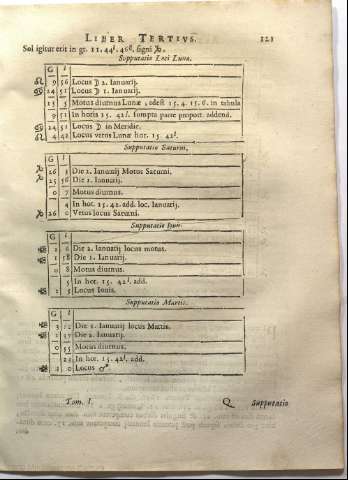 LIBER TERTIVS. 121
Sol igitur erit in gr. 11. 44ˡ. 46ˡˡ. signi ♑.
Supputatio Loci Lunæ.
G | 1
♌ 9 | 56 Locus ☽ 2. Ianuarij.
♋ 24 | 51 Locus ☽ 1. Ianuarij.
15 | 5 Motus diurnus Lunæ, adest 15. 4. 15. 6. in tabula
9 | 51 In horis 15. 42ˡ. sumpta parte proport. addend.
♋ 24 | 51 Locus ☽ in Meridie.
♌ 4 | 42 Locus verus Lunæ hor. 15. 42ˡ.
Supputatio Saturni.
G | 1
♑ 26 | 3 Die 2. Ianuarij Motus Saturni.
♑ 25 | 56 Die 1. Ianuarij.
0 | 7 Motus diurnus.
4 In hor. 15. 42. add. loc. Ianuarij.
♑ 26 | 0 Verus locus Saturni.
Supputatio Iouis.
G | 1
2 | 6 Die 2. Ianuarij locus motus.
1 | 58 Die 1. Ianuarij.
0 | 8 Motus diurnus.
5 In hor. 15. 42ˡ. add.
2 | 5 Locus Iouis.
Supputatio Martis.
G | 1
3 | 12 Die 2. Ianuarij locus Martis.
1 | 37 Die 2. Ianuarij.
0 | 55 Motus diurnus.
22 In hor. 15. 42ˡ. add.
2 | 0 Locus ♂
Tom. I. Q Supputatio